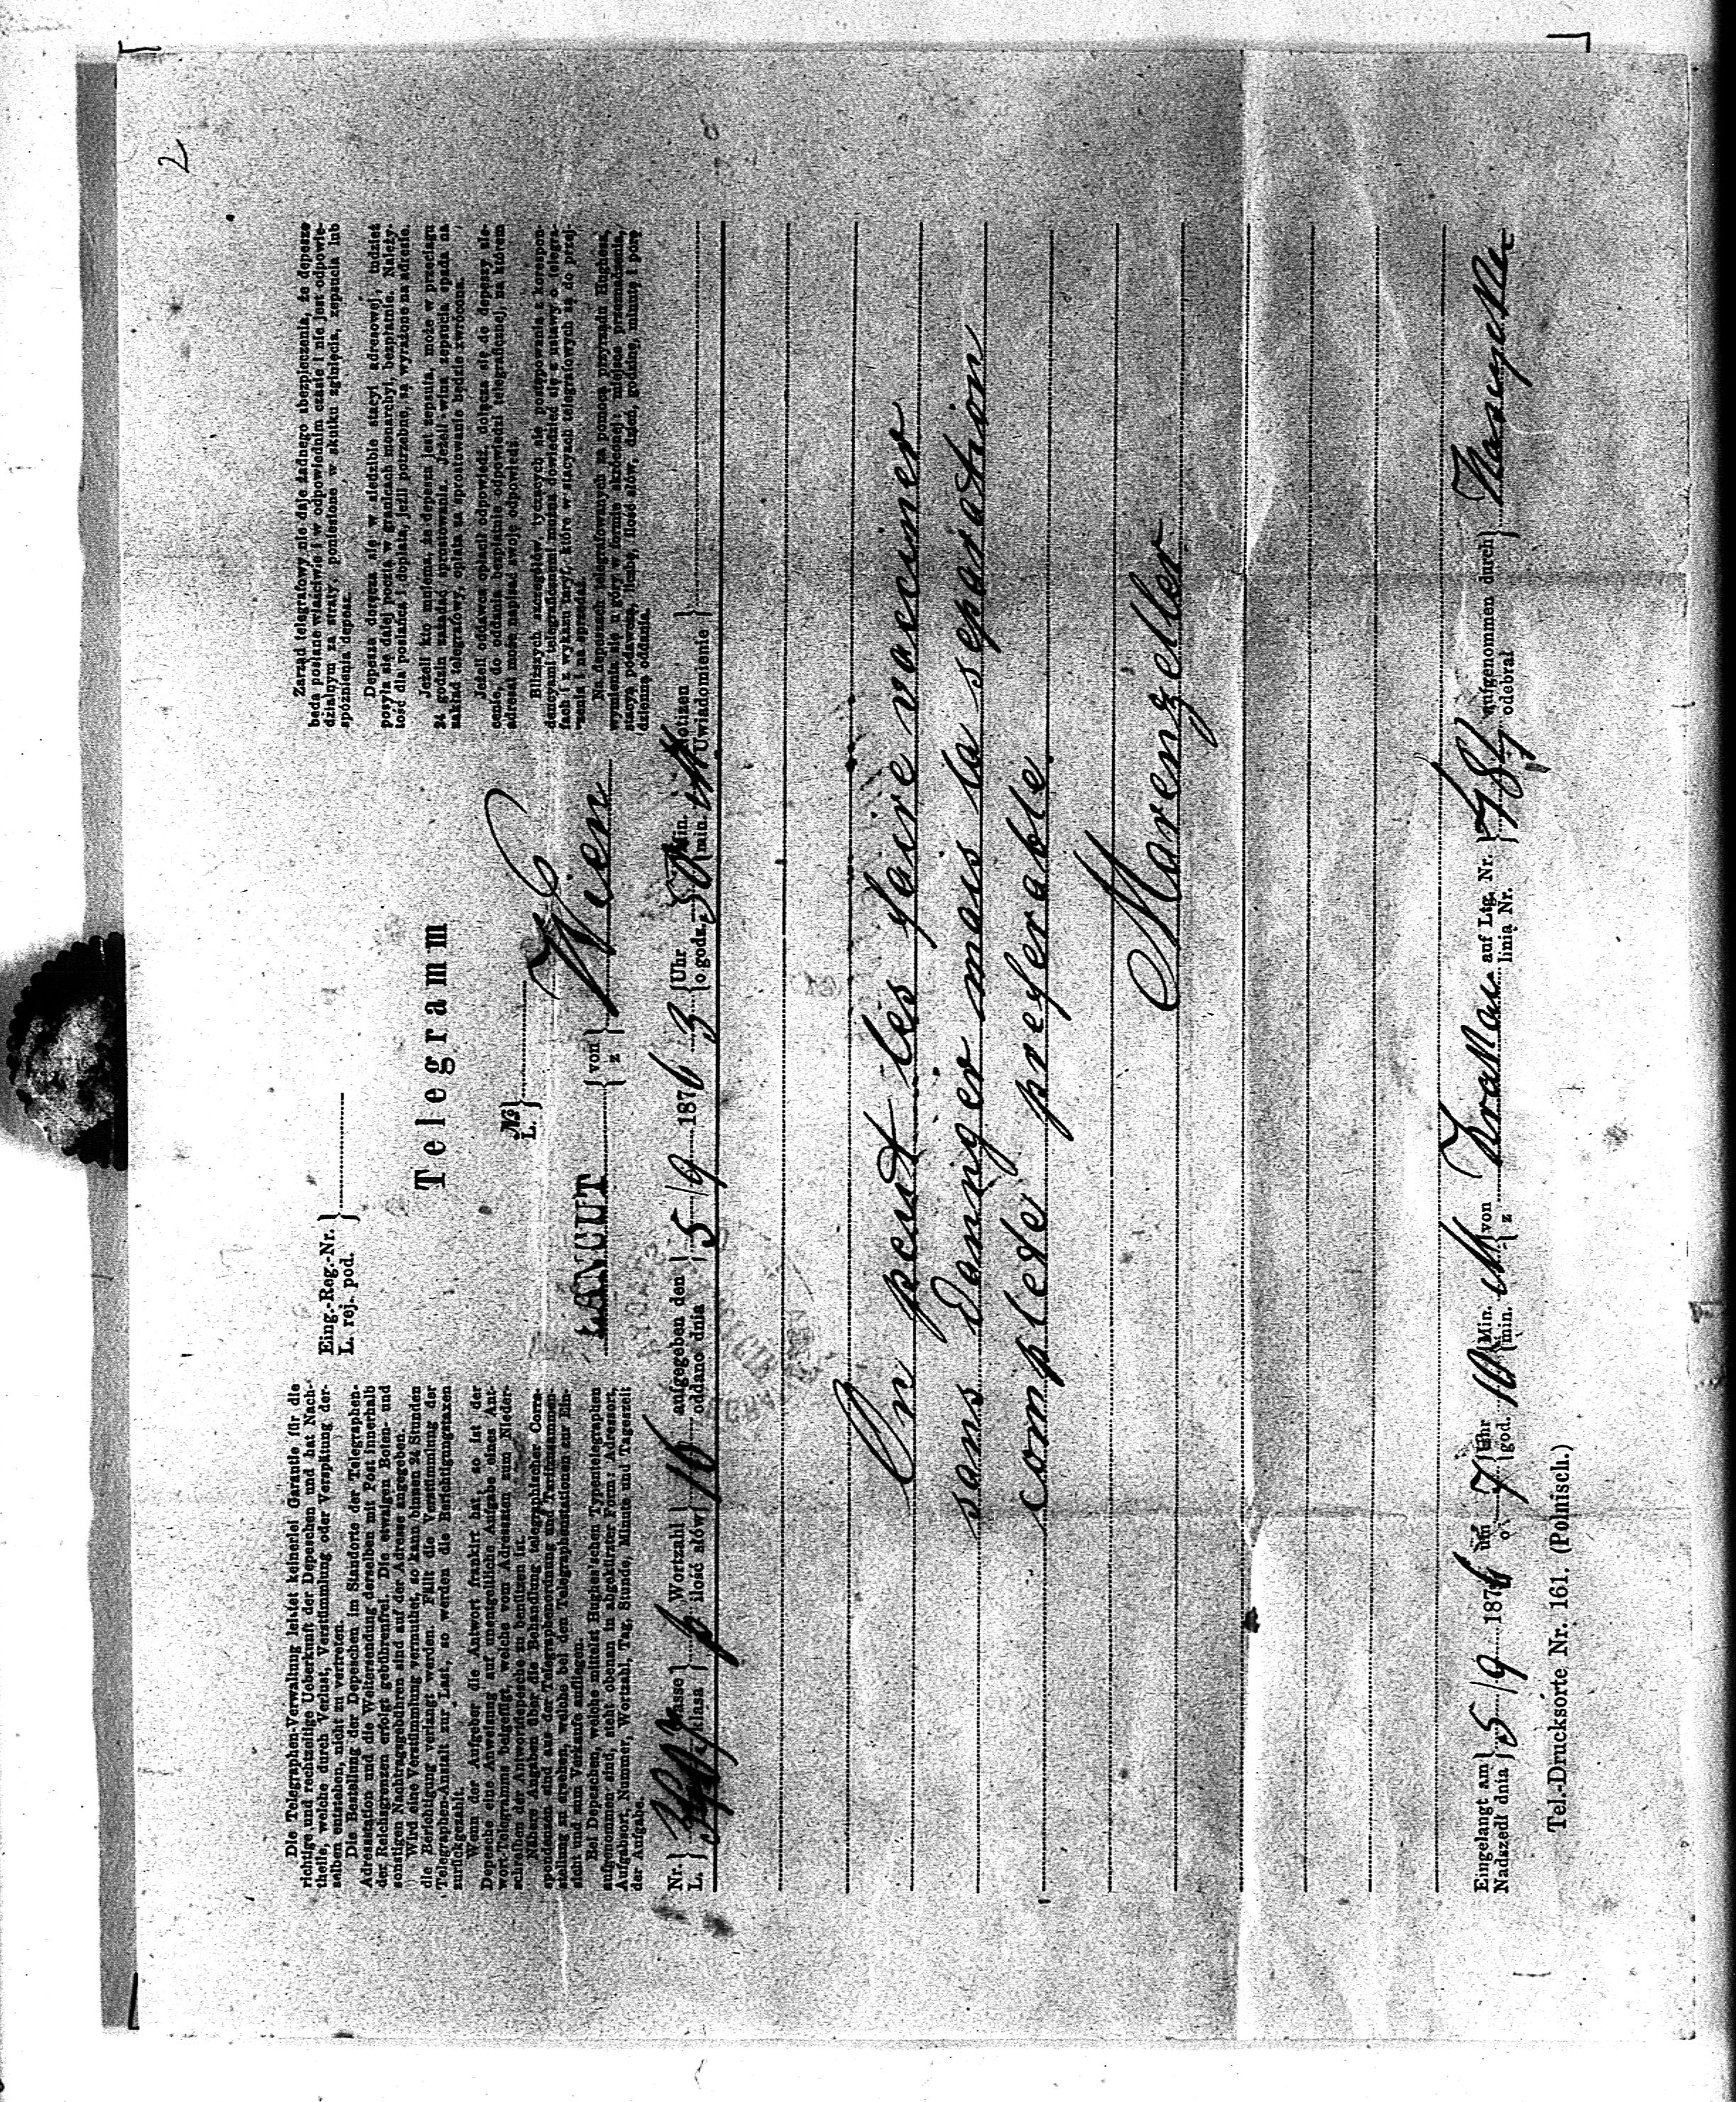 2
Die Telegraphen-Verwaltung leistet keinerlei Garantie für die
richtige und rechtzeitige Ueberkunft der Depeschen und hat Nach-
theile, welche durch Verlust, Verstümmlung oder Verspätung der-
selben entstehen, nicht zu vertreten.
Die Bestellung der Depeschen im Standorte der Telegraphen-
Adressstation und die Weitersendung derselben mit Post innerhalb
der Reichsgrenzen erfolgt gebührenfrei. Die etwaigen Boten- und
sonstigen Nachtragsgebühren sind auf der Adresse angegeben.
Wird eine Verstümmlung vermuthet, so kann binnen 24 Stunden
die Berichtigung verlangt werden. Fällt die Verstümmlung der
Telegraphen-Anstalt zur Last, so werden die Berichtigungstaxen
zurückgezahlt.
Wenn der Aufgeber die Antwort frankirt hat, so ist der
Depesche eine Anweisung auf unentgeltliche Aufgabe eines Ant-
wort-Telegramms beigefügt, welche vom Adressaten zum Nieder-
schreiben der Antwortdepesche zu benützen ist.
Nähere Angaben über die Behandlung telegraphischer Corre-
spondenzen sind aus der Telegraphenordnung und Tarifzusammen-
stellung zu ersehen, welche bei den Telegraphenstationen zur Ein-
sicht und zum Verkaufe aufliegen.
Bei Depeschen, welche mittelst Hughes'schen Typentelegraphen
aufgenommen sind, steht obenan in abgekürzter Form: Adressort,
Aufgabsort, Nummer, Wortzahl, Tag, Stunde, Minute und Tageszeit
der Aufgabe.
Eing.-Reg.-Nr.
L. rej. pod.
Telegramm
№
L.
ŁAŃCUT von z Wien
Zarząd telegrafowy nie daje żadnego ubezpieczenia, że depesze
będą posłane właściwie i w odpowiednim czasie i nie jest odpowie-
dzialnym za straty, poniesione w skutku zginięcia, zepsucia lub
spóźnienia depesz.
Depesza doręcza się w siedzibie stacyi adresowej, tudzież
posyła się dalej pocztą w granicach monarchyi, bezpłatnie. Należy-
tość dla posłańca i dopłata, jeźli potrzebne, są wyrażone na adresie.
Jeżeli kto mniema, że depesza jest zepsuta, może w przeciągu
24 godzin zażądać sprostowania. Jeżeli wina zepsucia spada na
zakład telegrafowy, opłata za sprostowanie będzie zwrócona.
Jeżeli oddawca opłacił odpowiedź, dołącza się do depeszy zle-
cenie, do oddania bezpłatnie odpowiedzi telegraficznej, na którem
adresat może napisać swoję odpowiedź.
Bliższych szczegółów, tyczących się postępowania z korespon-
dencyami telegraficznemi można dowiedzieć się z ustawy o telegra-
fach i z wykazu taryf, które w stacyach telegrafowych są do przej-
rzenia i na sprzedaż.
Na depeszach telegrafowanych za pomocą przyrządu Hughesa,
wymienia się u góry w formie skróconej: miejsce przeznaczenia,
stacya podawcza, liczbę, ilość słów, dzień, godzinę, minutę i porę
dzienną oddania.
Nr. Classe Wortzahl 16 aufgegeben den 5/9 1876 3 Uhr 50 Min. Notizen
L. klasa ilość słów oddano dnia o godz. min. Uwiadomienie
On peut les faire vacciner
sans danger mais la separation
complete preferable
Marenzeller
Eingelangt am 5/9 1876 um 7 Uhr 10 Min. von Krakau auf Ltg. Nr. aufgenommen durch
Nadszedł dnia o god. min. z linią Nr. odebrał
Tel.-Drucksorte Nr. 161. (Polnisch.)